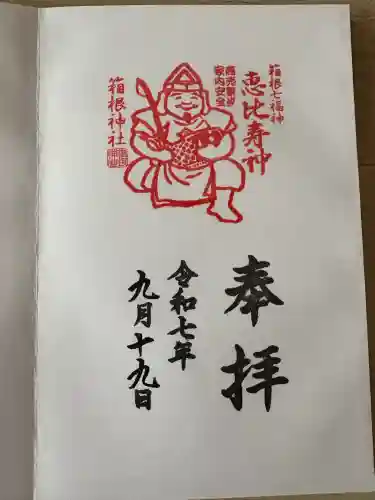 箱根七福神
恵比寿神
商売繁昌
家内安全
箱根神社
奉拝
令和七年
九月十九日